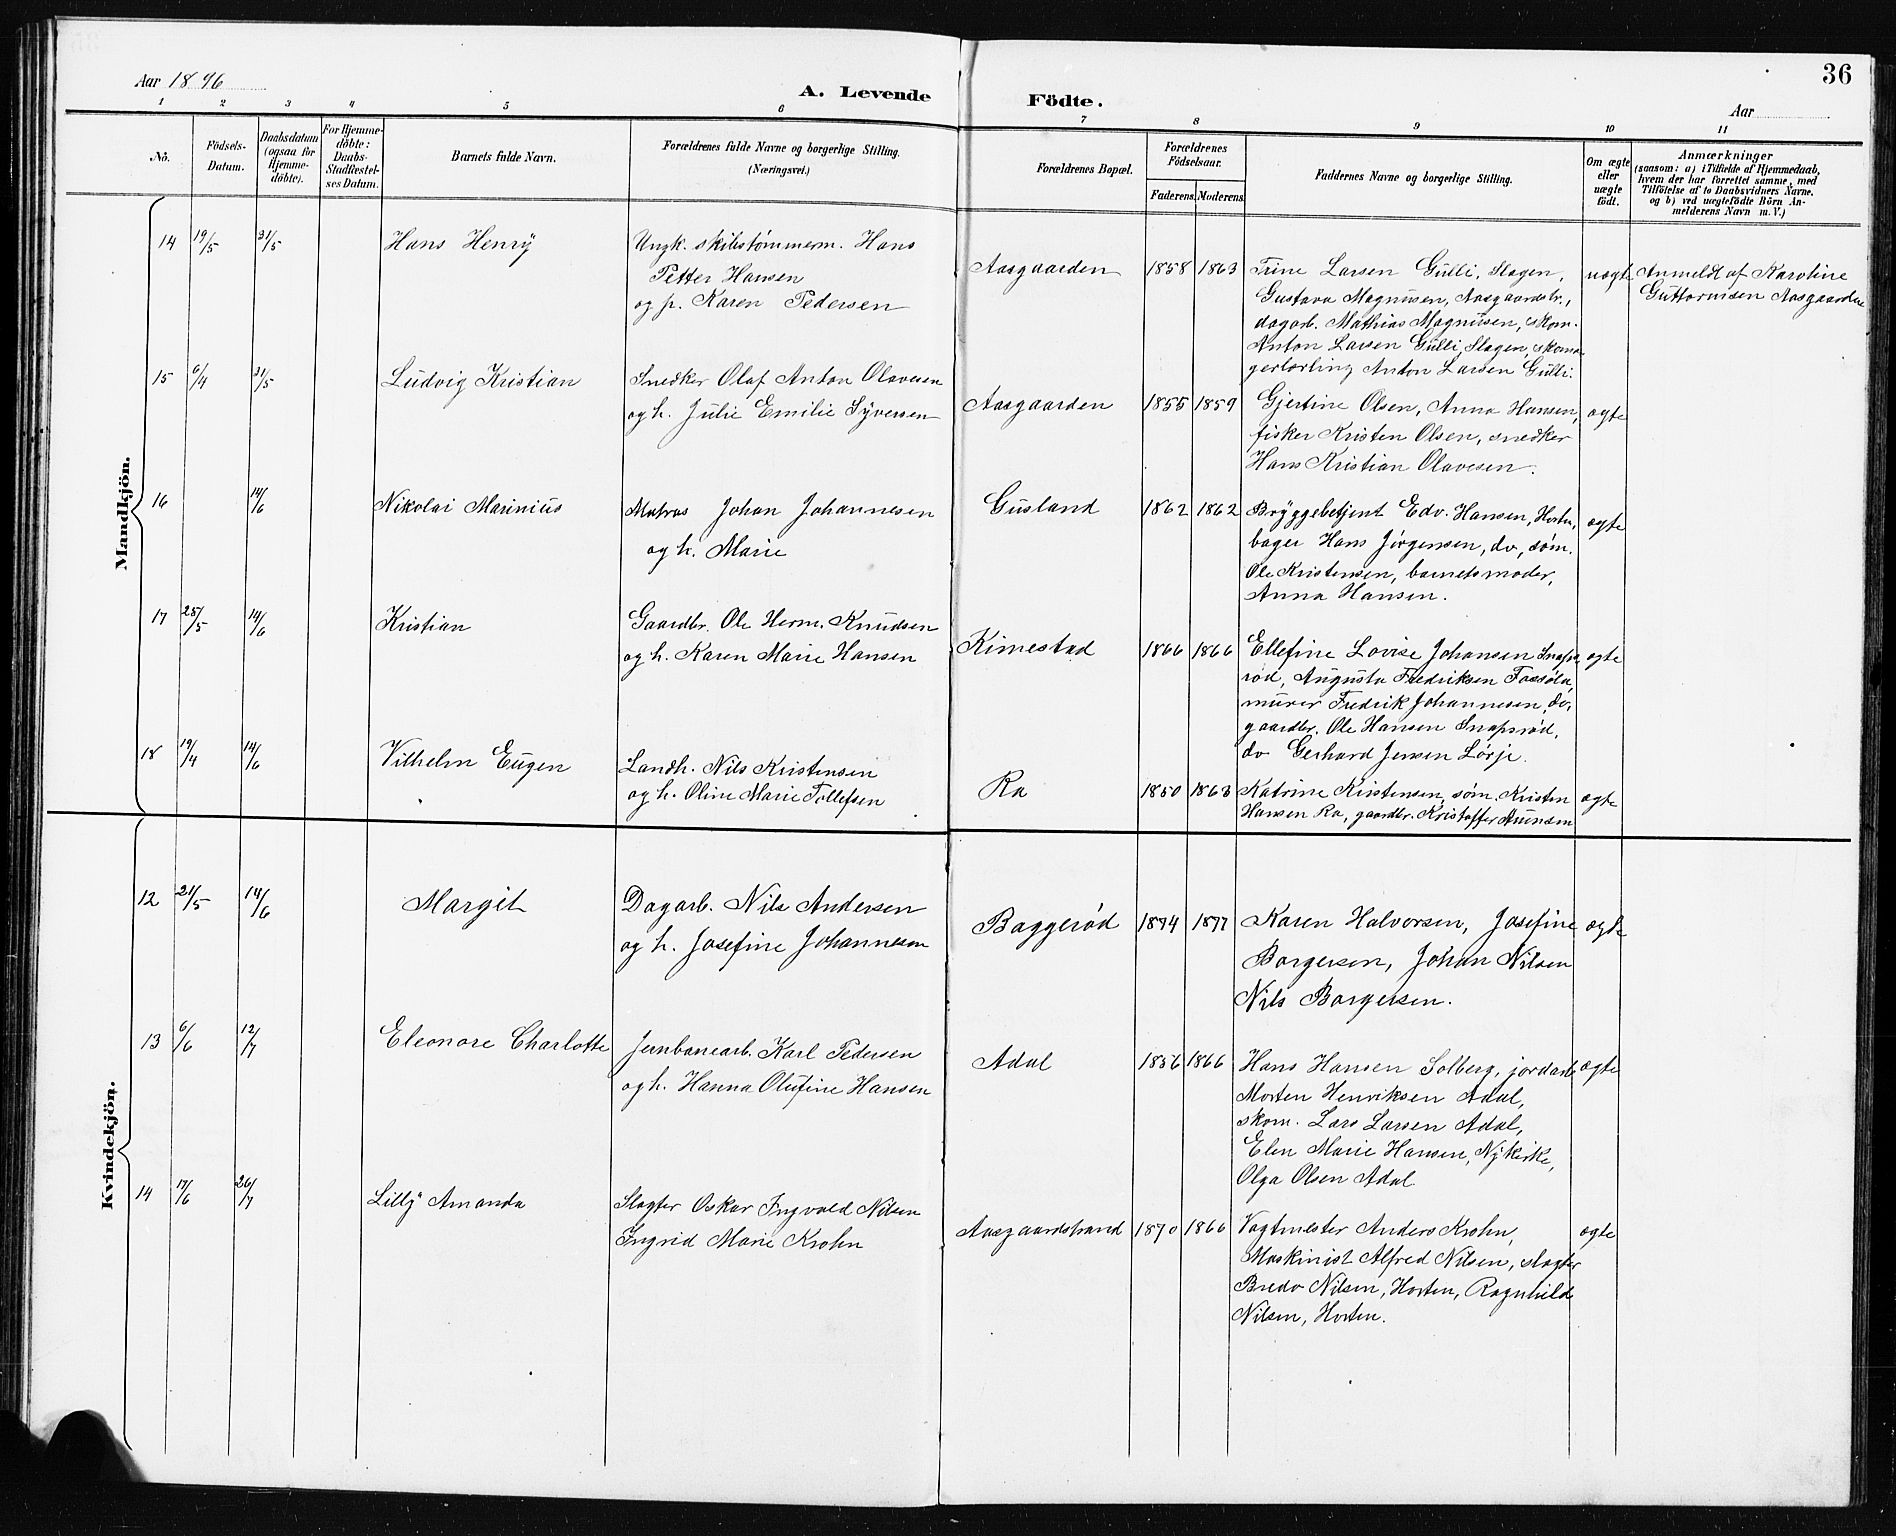 36
Aar 1896
A. Levende Födte.
Aar
1 2 3 4 5 6 7 8 9 10 11
No.
Födsels-Datum.
Daabsdatum (ogsaa for Hjemmedöbte).
For Hjemmedöbte: Daabs-Stadfæstelses Datum.
Barnets fulde Navn.
Forældrenes fulde Navne og borgerlige Stilling.
(Næringsvei.)
Forældrenes Bopæl.
Forældrenes Födselsaar.
Faderens. Moderens.
Faddernes Navne og borgerlige Stilling.
Om ægte eller uægte födt.
Anmærkninger
(saasom: a) i Tilfælde af Hjemmedaab,
hvem der har forrettet samme, med
Tilföielse af to Daabsvidners Navne,
og b) ved uægtefödte Börn An-
melderens Navn m. V.)
Mandkjön.
14 19/5 31/5 Hans Henry
Ungk. skibstømmerm. Hans
Petter Hansen
og p. Karen Pedersen
Aasgaarden 1858 1863
Trine Larsen Gulli, Slagen,
Gustava Magnusen, Aasgaardstr.,
dagarb. Mathias Magnusen, skom.
Anton Larsen Gulli, Slagen, skoma-
gerlærling Anton Larsen Gulli.
uægte
Anmeldt af Karoline
Guttormsen Aasgaarden
15 6/4 31/5 Ludvig Kristian
Snedker Olaf Anton Olavesen
og h. Julie Emilie Syversen
Aasgaarden 1855 1859
Gjertine Olsen, Anna Hansen,
fisker Kristen Olsen, snedker
Hans Kristian Olavesen.
ægte
16 14/6 Nikolai Marinius
Matros Johan Johannesen
og h. Marie
Gusland 1862 1862
Bryggebetjent Edv. Hansen, Horten,
bager Hans Jørgensen, do, søm.
Ole Kristensen, barnets moder,
Anna Hansen.
ægte
17 25/5 14/6 Kristian
Gaardbr. Ole Herm. Knudsen
og h. Karen Marie Hansen
Kimestad 1866 1866
Ellefine Lovise Johansen Snaps-
rød, Augusta Fredriksen
murer Fredrik Johannesen, do,
gaardbr. Ole Hansen Snapsrød,
do Gerhard Jensen Lørje.
ægte
18 19/4 14/6 Vilhelm Eugen
Landh. Nils Kristensen
og h. Oline Marie Tollefsen
Ra 1850 1863
Katrine Kristensen, søm. Kristen
Hansen Ra, gaardbr. Kristoffer
ægte
Kvindekjön.
12 21/5 14/6 Margit
Dagarb. Nils Andersen
og h. Josefine Johannesen
Baggerød 1874 1877
Karen Halvorsen, Josefine
Borgersen, Johan Nilsen
Nils Borgersen.
ægte
13 6/6 12/7 Eleonore Charlotte
Jernbanearb. Karl Pedersen
og h. Hanna Olufine Hansen
Adal 1856 1866
Hans Hansen Solberg, jordarb,
Morten Henriksen Adal,
skom. Lars Larsen Adal,
Elen Marie Hansen, Nykirke,
Olga Olsen Adal
ægte
14 17/6 26/7 Lilly Amanda
Slagter Oskar Ingvald Nilsen
Ingrid Marie Krohn
Aasgaardstrand 1870 1866
Vagtmester Anders Krohn,
Maskinist Alfred Nilsen, slagter
Bredo Nilsen, Horten, Ragnhild
Nilsen, Horten.
ægte